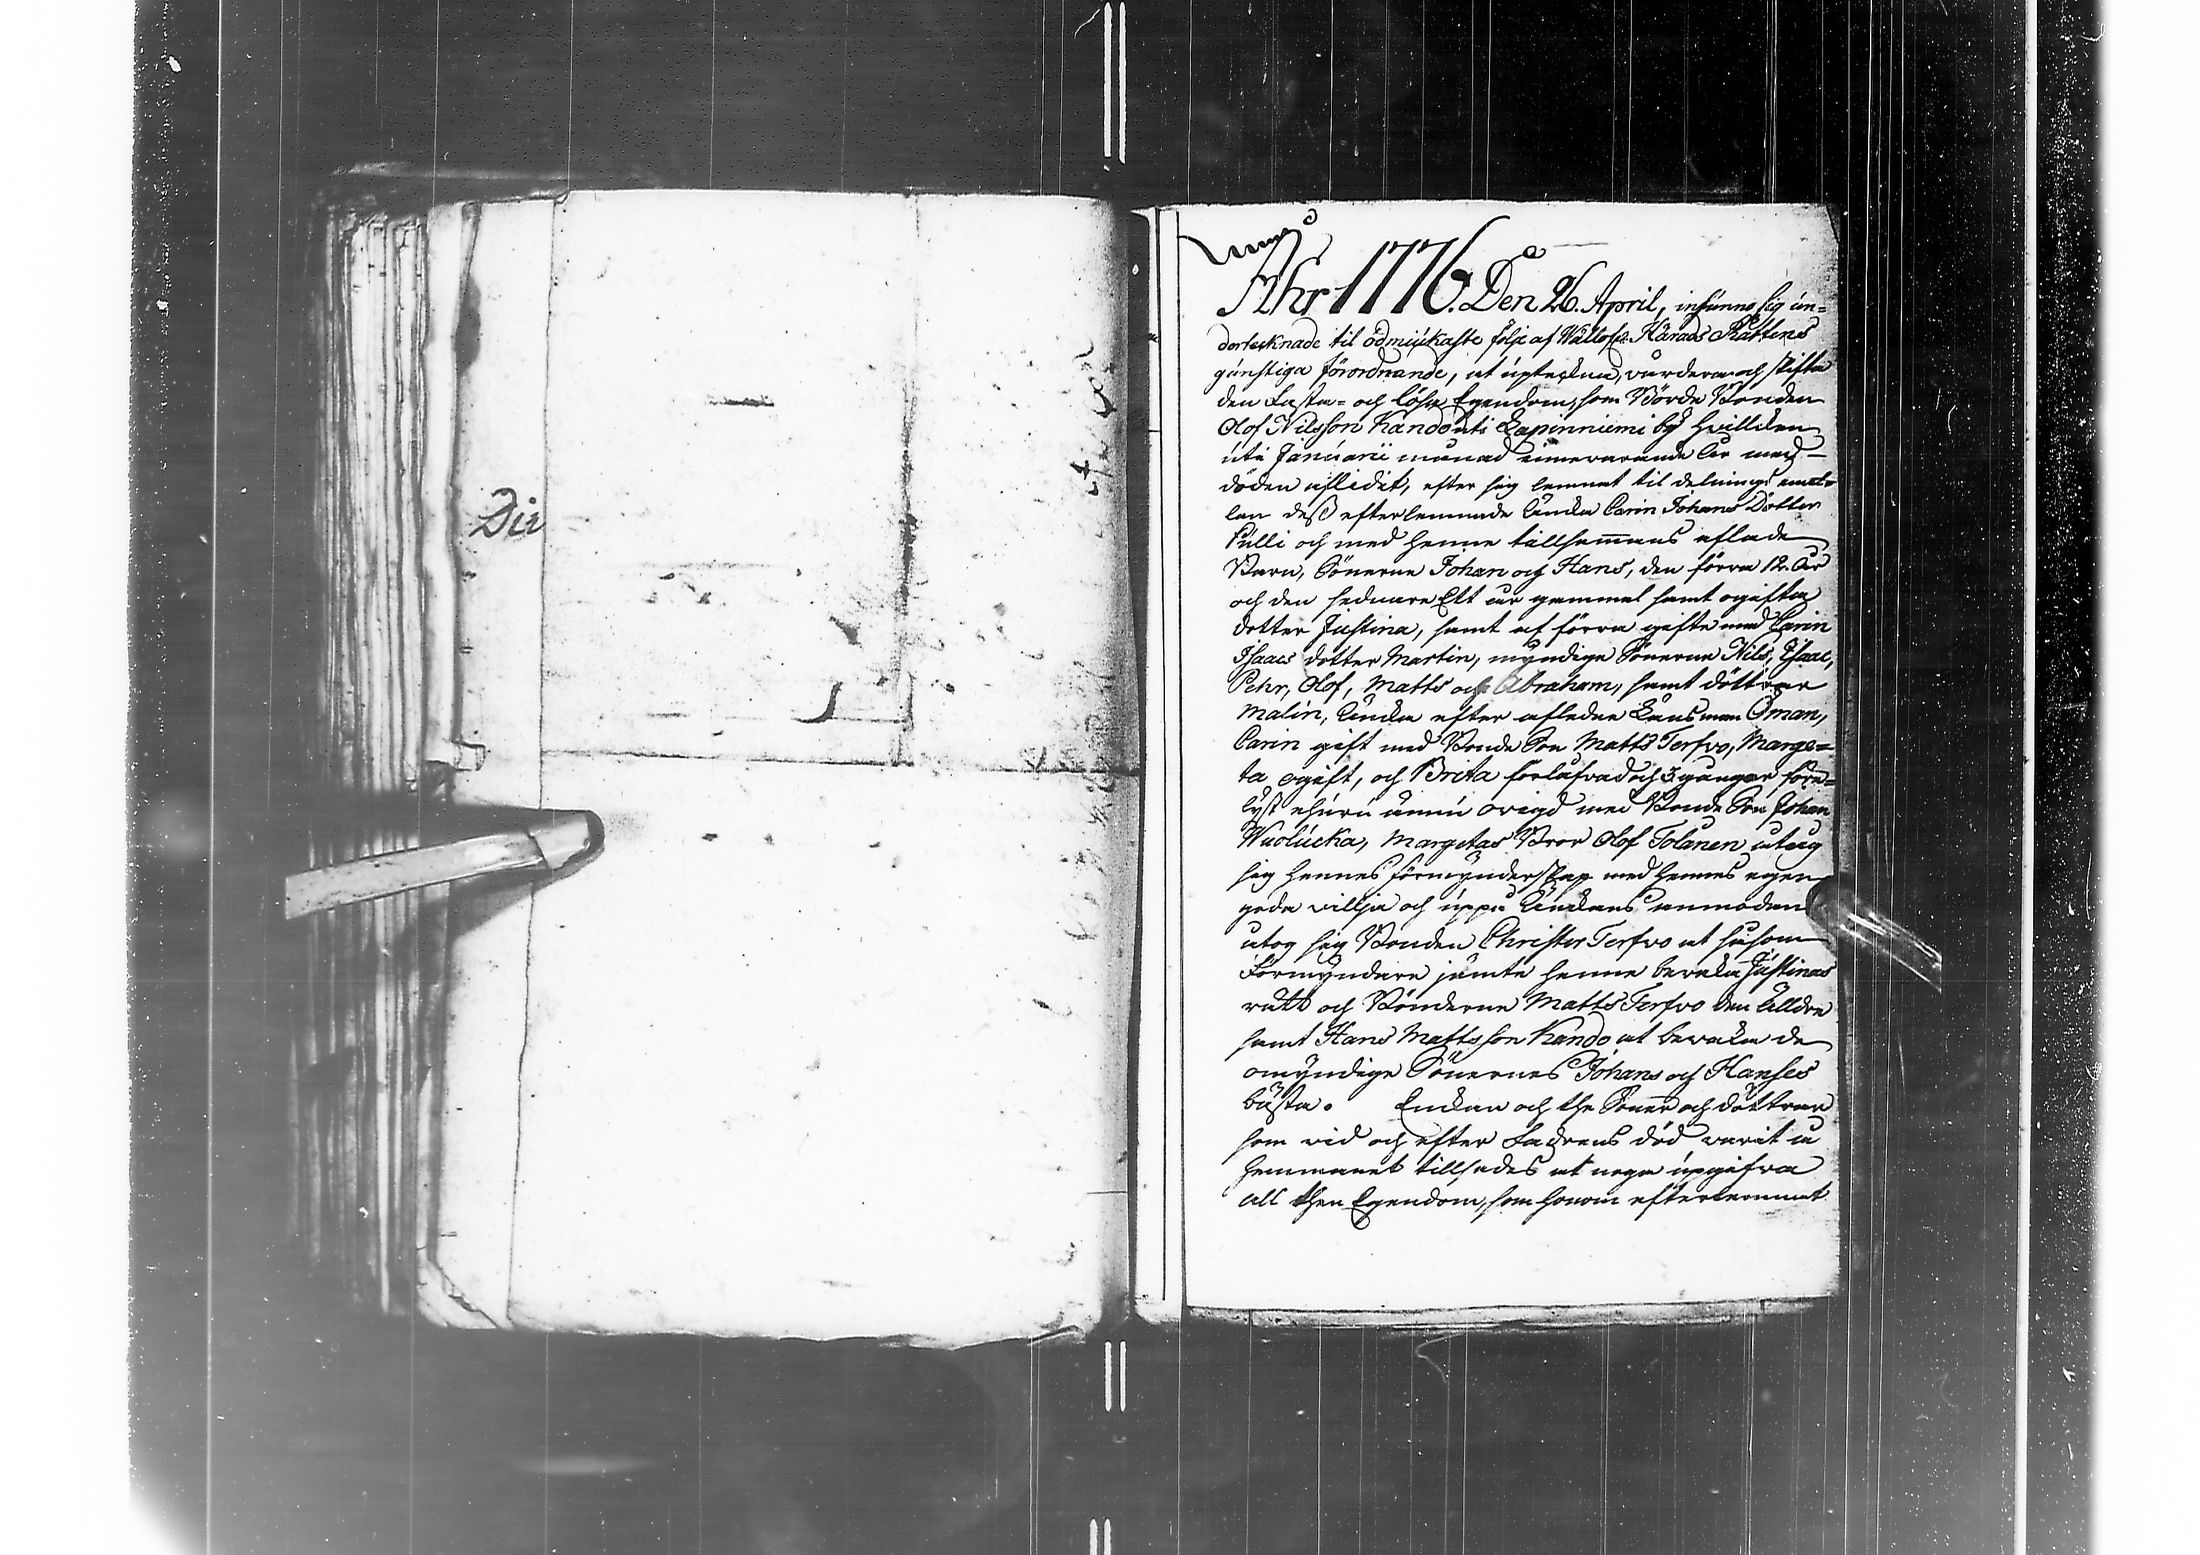 Dii
Åhr 1776. Den 26. April, infunno sig un=
dertecknade til ödmiukaste följe af Wällofl. Härads Rättens
gunstiga förordnande, at upteckna, värdera och skifta
den Fasta- och lösa Egendom, som Börde Bonden
Olof Nilsson Kando uti Lapinniemi by hvilken
uti Januarii månad innevarande år med
döden aflidit, efter sig lemnat til delnings emel-
lan dess efterlemnade Enka Carin Johans Dotter
Pulli och med henne tillsammans aflade
Barn, Sönerne Johan och Hans, den förra 12. år
och den sednare Ett år gammal samt ogifta
dotter Justina, samt af förra gifte med Carin
Isaacs dotter Martin, myndige Sönerne Nils, Isaac,
Pehr, Olof, Matts och Abraham, samt döttrar
Malin, Enka efter afledne Länsman Öman,
Carin gift med Bonde Son Matts Terfvo, Marge=
ta ogift, och Brita förlåfvad och 3 gångor före=
lyst ehuru ännu ovigd med Bonde Son Johan
Wuolucka, Margetas Bror Olof Tolanen utog
sig hennes förmynderskap med hennes egen
goda villja och uppå Enkans anmodan
utog sig Bonden Christer Terfvo at såsom
Förmyndare jämte henne bevaka Justinas
rätt och Bönderne Matts Terfvo den älldre
samt Hans Mattsson Kando at bevaka de
omyndige Sönernes Johans och Hanses
bästa. Enkan och the Söner och döttrar
som vid och efter Fadrens död varit å
hemmanet tillsades at noga upgifva
all then Egendom, som honom efterlemnat